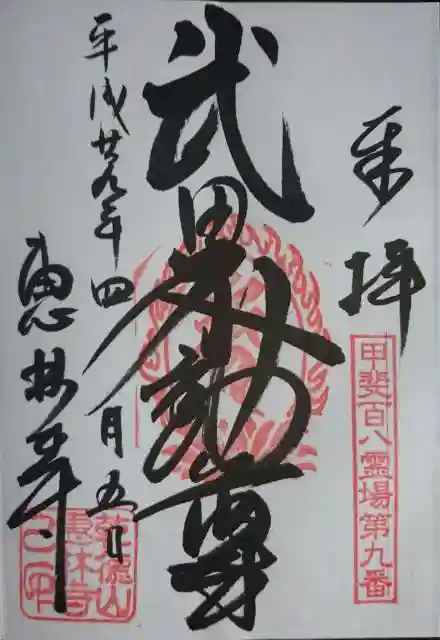 奉拝
甲斐百八霊場第九番
武田不動尊
平成廿九年四月五日
恵林寺
乾徳山
恵林寺